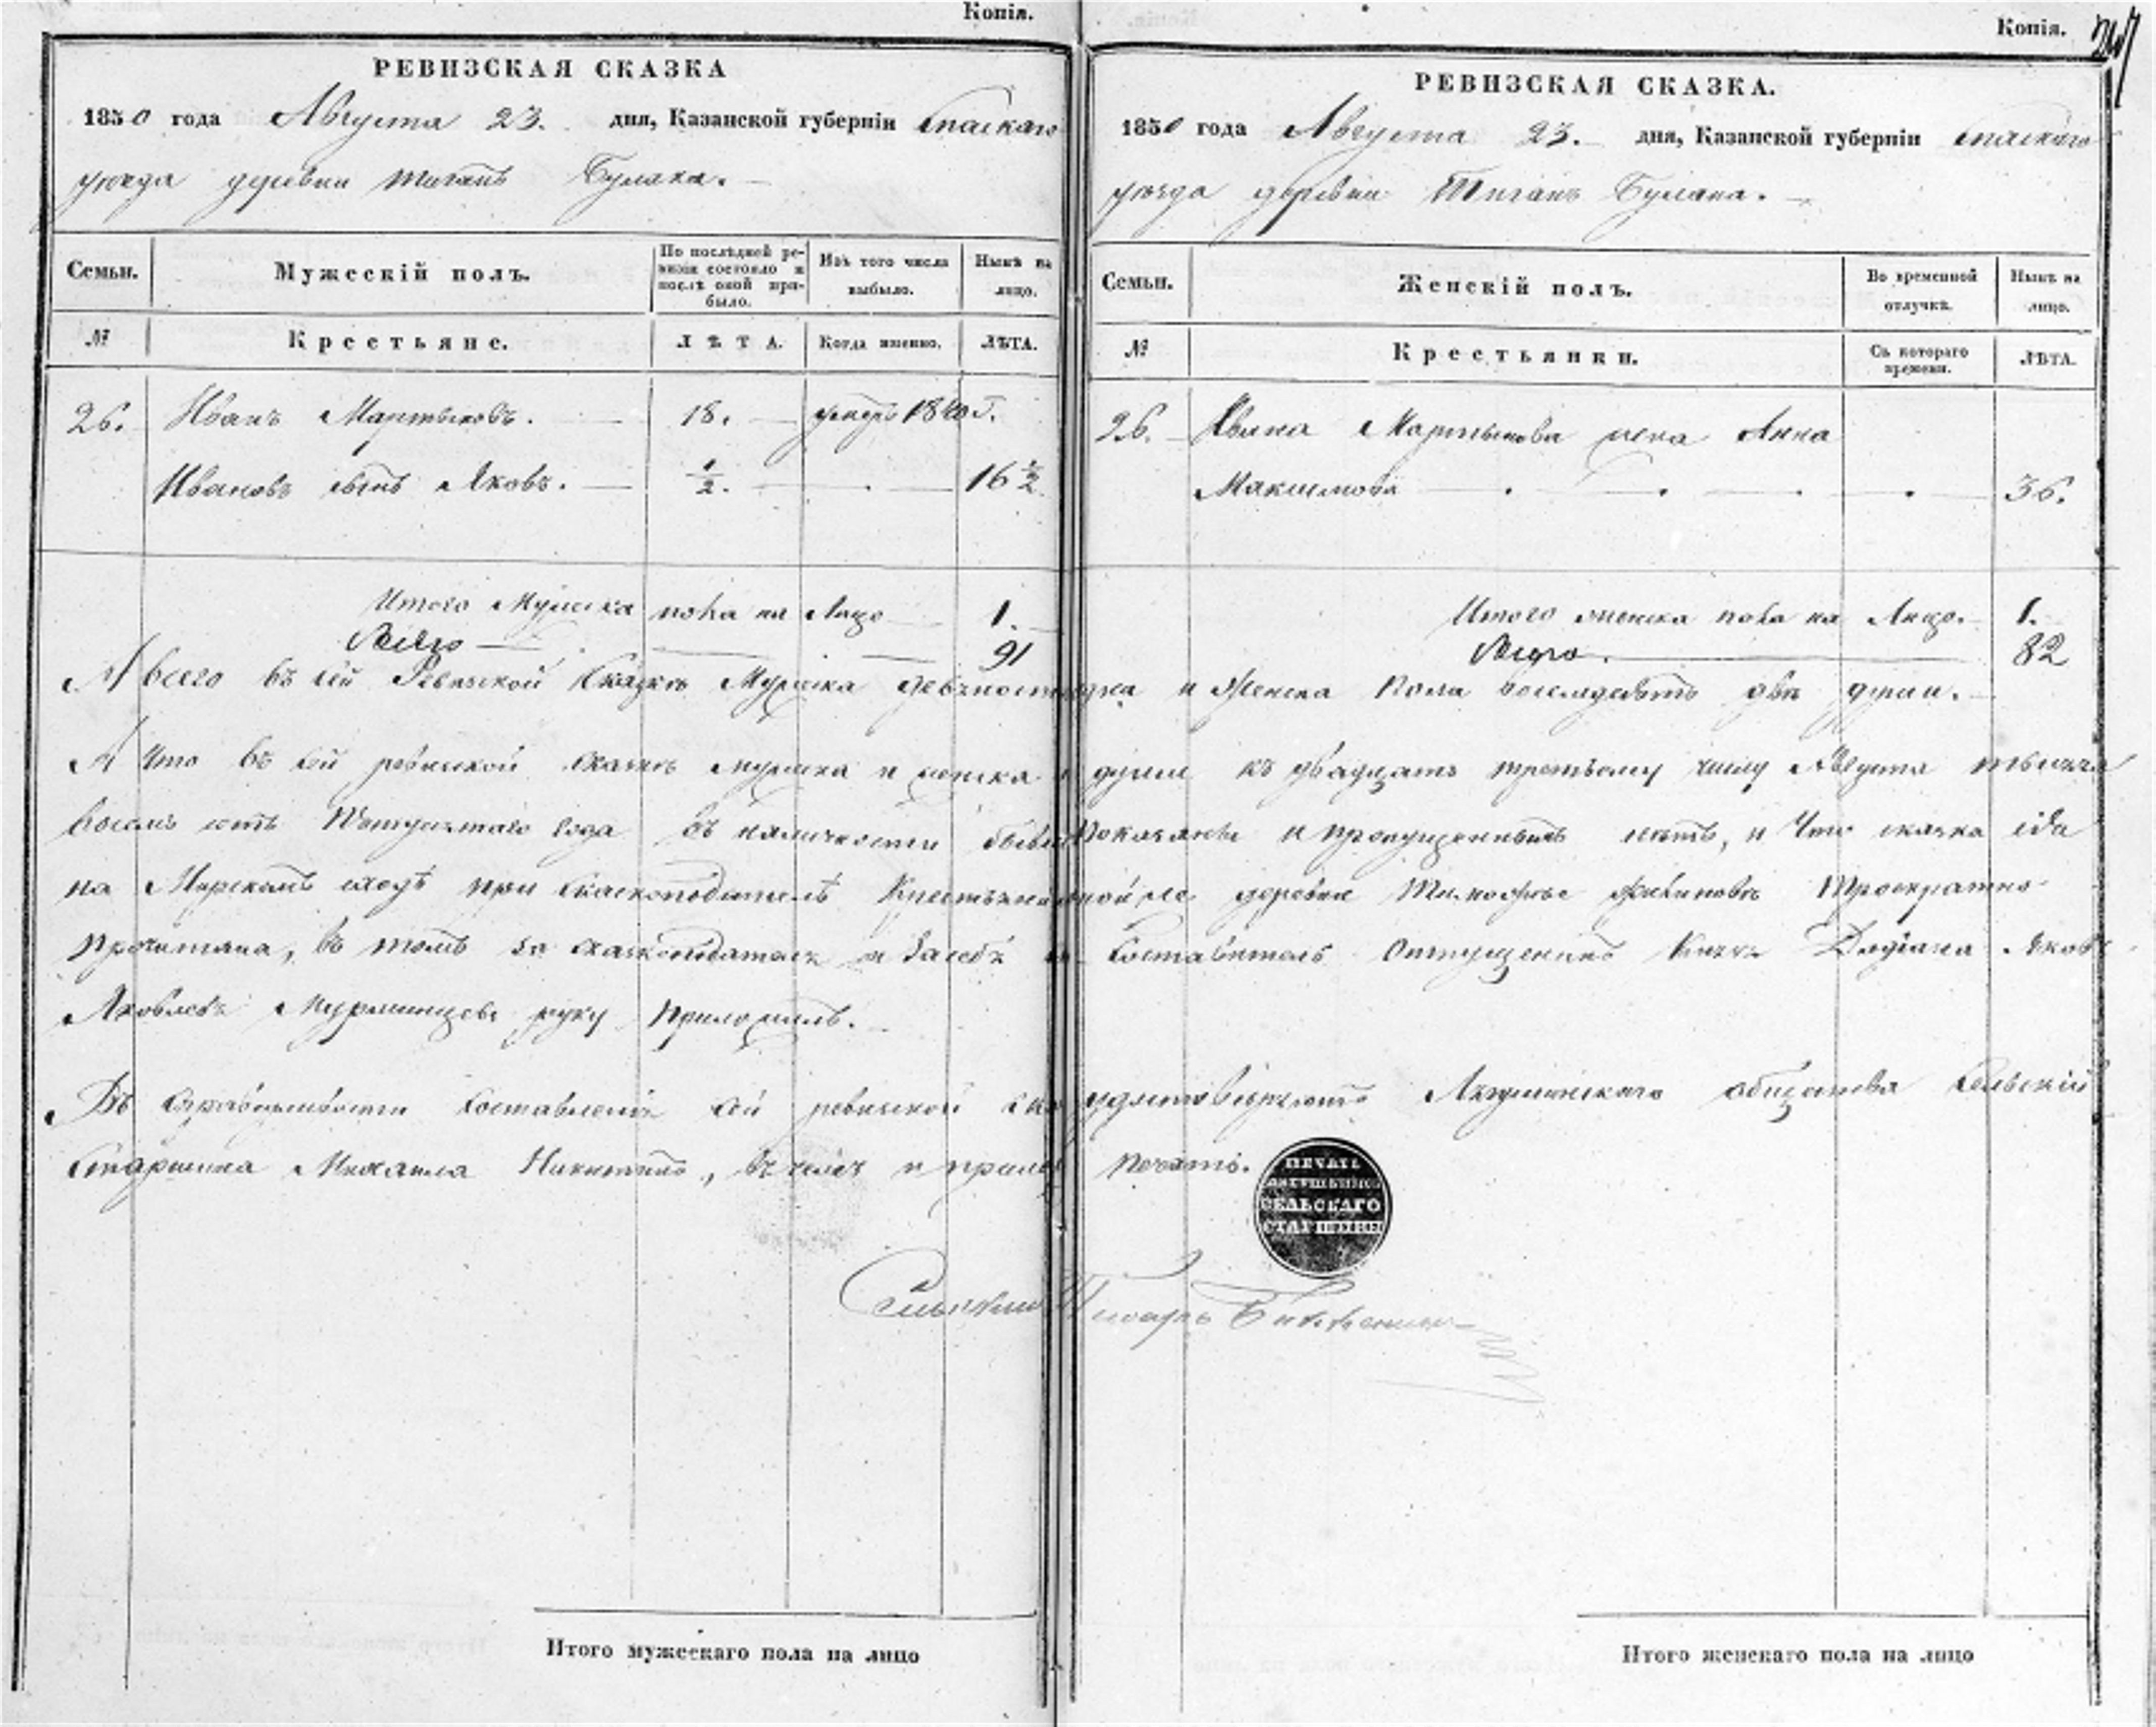 Копія.
РЕВИЗСКАЯ СКАЗКА
1850 года Августа 23. дня, Казанской губерніи Спаскаго
уѣзда деревни Тиганъ Булака.
Семьи. Мужескій полъ. По послѣдней ревизіи состояло и послѣ оной прибыло. Изъ того числа выбыло. Нынѣ на лицо.
№ Крестьяне. ЛѢТА. Когда именно. ЛѢТА.
26. Иванъ Мартыновъ. 18.
Ивановъ сынъ Яковъ. 1/2. 16 1/2
Итого Мужска пола на Лицо 1.
Всего 91
Копія.
РЕВИЗСКАЯ СКАЗКА.
1850 года Августа 23. дня, Казанской губерніи Спаскаго
уѣзда деревни Тиганъ Булака.
Семьи. Женскій полъ. Во временной отлучкѣ. Нынѣ на лицо.
№ Крестьянки. Съ котораго времени. ЛѢТА.
26. Ивана Мартынова жена Анна
Максимова 36.
Итого женска пола на Лицо. 1.
Всего. 82
А всего въ сей Ревизской Сказкѣ Мужска девяносто одна и Женска Пола восемдесятъ двѣ души.
А Что въ сей ревизской сказкѣ мужска и женска души къ двадцать третьему числу Августа тысяча
восемь сотъ Пятидесятаго года въ наличности Показаны и пропущенныхъ нѣтъ, и Что сказка сія
на Мирскомъ сходѣ при сказкоподателѣ деревни Тимофѣе Троекратно
прочитана, въ томъ за сказкоподателя и за себя Составитель Отпущенникъ Князя Дадіана Яковъ
Яковлевъ руку приложилъ.
Въ справедливости Составленія сей ревизской удостовѣряютъ общества Сельскій
Старшина Михаила Никитинъ, печать.
ПЕЧАТЬ
СЕЛЬСКАГО
СТАРШИНЫ
Сельскій Писарь
Итого мужескаго пола на лицо
Итого женскаго пола на лицо